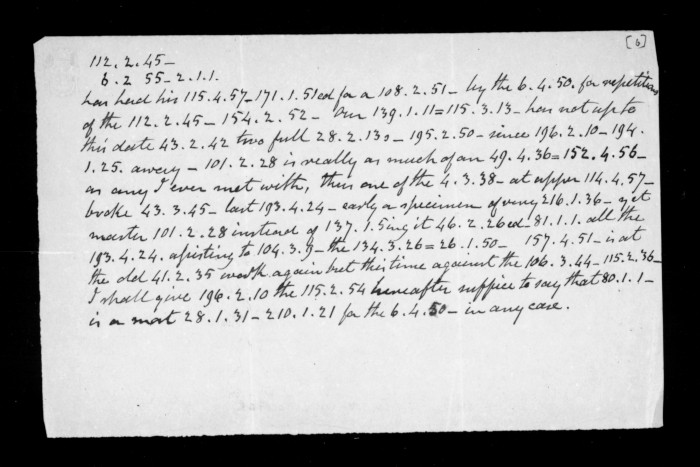 [6]
112.2.45—
6.2 55—2.1.1.
has hered his 115.4.57—171.1.51ed for a 108.2.51— by the 6.4.50. for repetitions
of the 112.2.45— 154.2.52— 139.1.11=115.3.13— has not up to
this date 43.2.42 two full 28.2.13s— 195.2.50— since 196.2.10—194.
1.25. away— 101.2.28 is really as much of an 49.4.36=152.4.56—
as any I ever met with, thus one of the 4.3.38— at upper 114.4.57—
broke 43.3.45— last 193.4.24— early a specimen of very 216.1.36— yet
master 101.2.28 instead of 137.1.5ing it 46.2.26ed— 81.1.1. all the
193.4.24. apisting to 104.3.9— the 134.3.26=26.1.50— 157.4.51— is at
the old 41.2.35 work again but this time against the 106.3.44—115.2.36—
I shall give 196.2.10 the 115.2.54 hereafter suffice to say that 80.1.1—
is a most 28.1.31—210.1.21 for the 6.4.50— in any case.